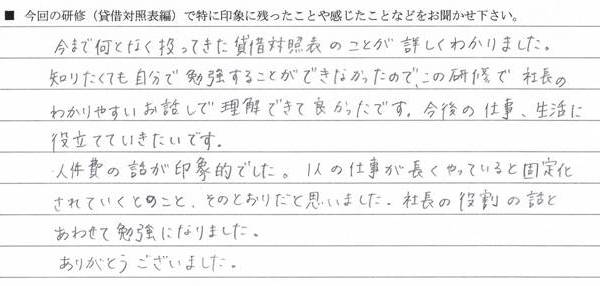 ■ 今回の研修（貸借対照表編）で特に印象に残ったことや感じたことなどをお聞かせ下さい。
今まで何となく扱ってきた貸借対照表のことが詳しくわかりました。
知りたくても自分で勉強することができなかったので、この研修で社長の
わかりやすいお話しで理解できて良かったです。今後の仕事、生活に
役立てていきたいです。
人件費の話が印象的でした。1人の仕事が長くやっていると固定化
されていくとのこと、そのとおりだと思いました。社長の役割の話と
あわせて勉強になりました。
ありがとうございました。